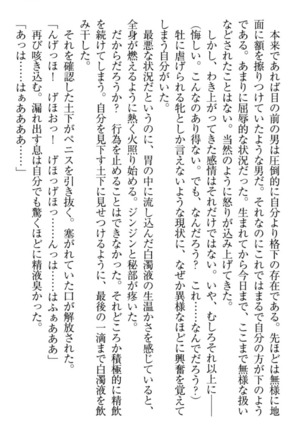 本来であれば目の前の男は圧倒的に自分より格下の存在である。先ほどは無様に地
面に額を擦りつけていたような男だ。それなのにこれではまるで自分の方が下のよう
である。あまりに屈辱的な状況だった。生まれてから今日まで、ここまで無様な扱い
などされたことはない。当然のように怒りが込み上げてきた。
しかし、わき上がってきた感情はそれだけではない。いや、むしろそれ以上に――
(悔しい。こんなのあり得ない。でも、なんだろう? これ……なんでだろう?)
牡に虐げられる牝としか言えないような現状に、なぜか異様なほどに興奮を覚えて
しまう自分がいた。
最悪な状況だというのに、胃の中に流し込んだ白濁液の生温かさを感じていると、
全身が燃えるように熱く火照り始める。ジンジンと秘部が疼いた。
だからだろうか? 行為を止めることはできなかった。それどころか積極的に精飲
を続けてしまう。自分を見下す土下に見せつけるように、最後の一滴まで白濁液を飲
み干した。
それを確認した土下がペニスを引き抜く。塞がれていた口が解放された。
「んげっほ! げほおっ! げほげほっ……んっは……はふぁああ」
再び咳き込む。漏れ出す息は自分でも驚くほどに精液臭かった。
「あっは……はぁあああ……」